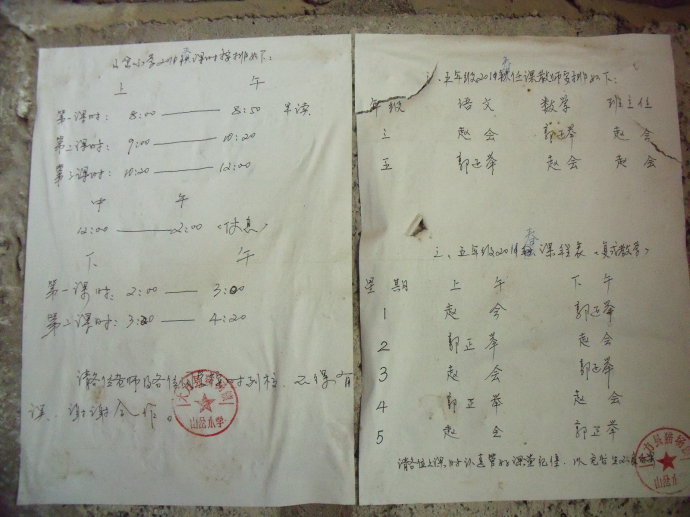 山岔小学2019春课时安排如下:
上 午
第一课时: 8:00 —— 8:50 早读
第二课时: 9:00 —— 10:20
第三课时: 10:20 —— 12:00
中 午
12:00 —— 2:00 (休息)
下 午
第一课时: 2:00 —— 3:00
第二课时: 3:20 —— 4:20
请各位老师及各位 时到校、不得有
误、谢谢合作。
山岔小学
三、五年级2019春任课教师安排如下:
年级 语文 数学 班主任
三 赵会 郭正举 赵会
五 郭正举 赵会 赵会
三、五年级2019春课程表 (复式教学)
星期 上午 下午
1 赵会 郭正举
2 郭正举 赵会
3 赵会 郭正举
4 郭正举 赵会
5 赵会 郭正举
请各位上课时认真管好课堂纪律、以免发生